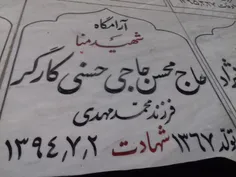 آرامگاه
شهید منا
حاج محسن حاجی حسنی کارگر
فرزند محمد مهدی
تولد ۱۳۶۷ شهادت ۱۳۹۴٫۷٫۲